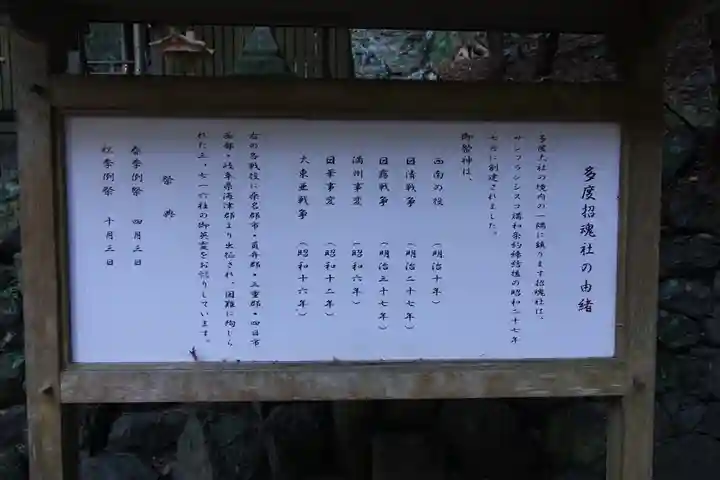 多度招魂社の由緒
多度大社の境内の一隅に鎮ります招魂社は、
サンフランシスコ講和条約締結後の昭和二十七年
七月に創建されました。
御祭神は、
西南の役 (明治十年)
日清戦争 (明治二十七年)
日露戦争 (明治三十七年)
満州事変 (昭和六年)
日華事変 (昭和十二年)
大東亜戦争 (昭和十六年)
右の各戦役に桑名郡市・員弁郡・三重郡・四日市
西部・岐阜県海津郡より出征され、国難に殉じら
れた三、七一六柱の御英霊をお祀りしています。
祭典
春季例祭 四月三日
秋季例祭 十月三日